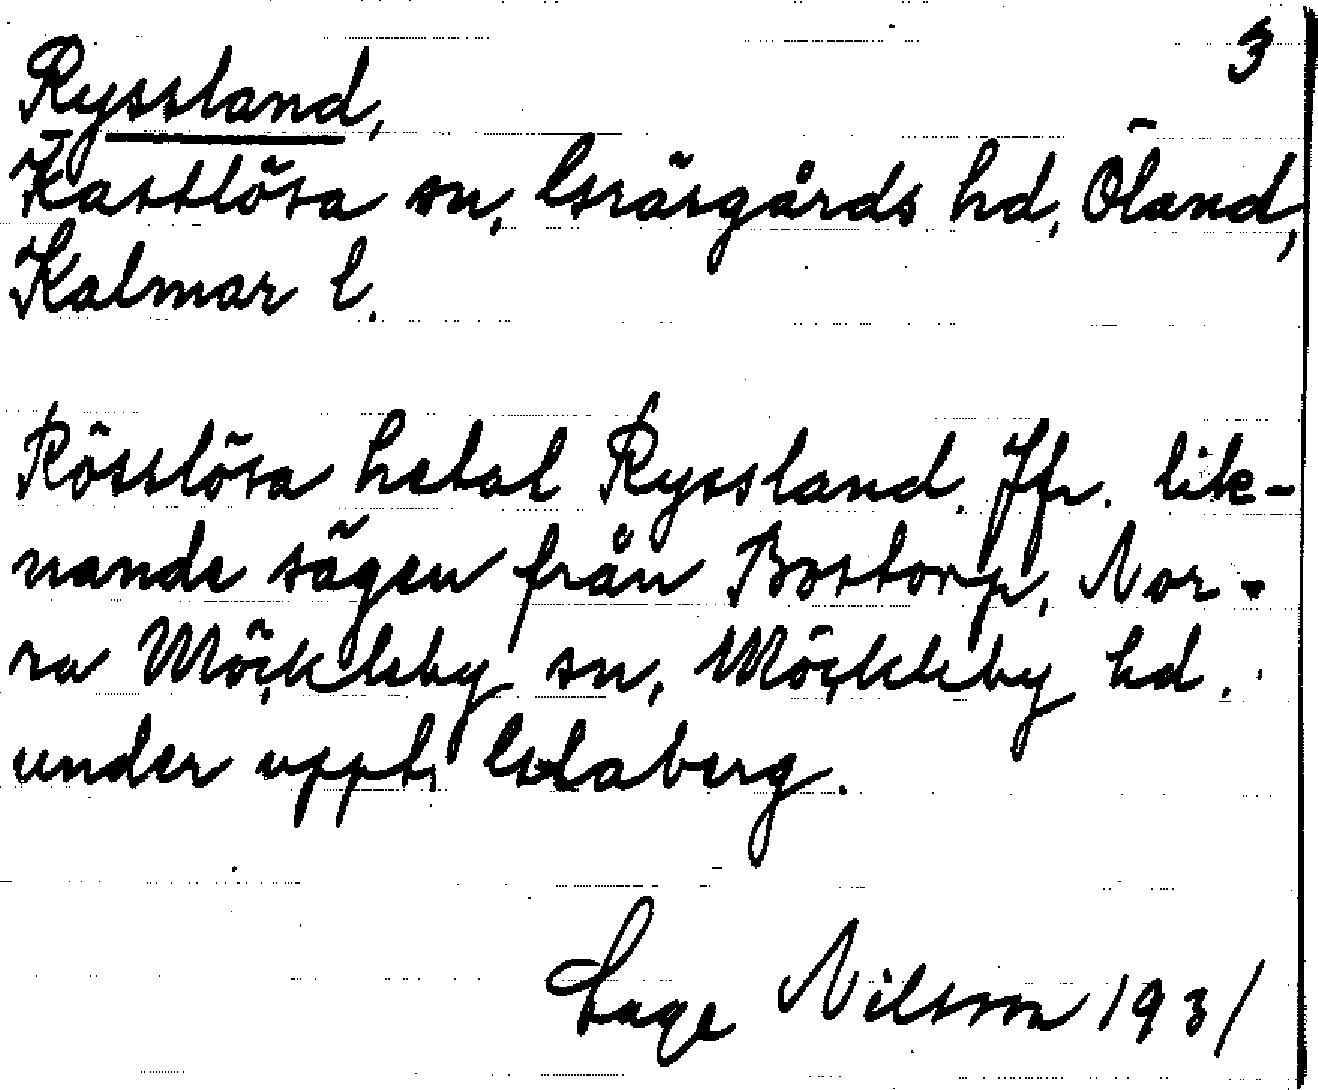 3
Ryssland,
Kastlösa sn, Gräsgårds hd, Öland,
Kalmar l.
Rösslösa hetat Ryssland. Jfr. lik-
nande sägen från Bostorp, Nor-
ra Möckleby sn, Möckleby hd.
under uppt,
Lage Nilsson 1931